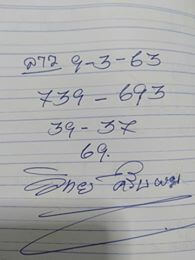 ลาว 9-3-63
739 - 693
39 - 37
69.